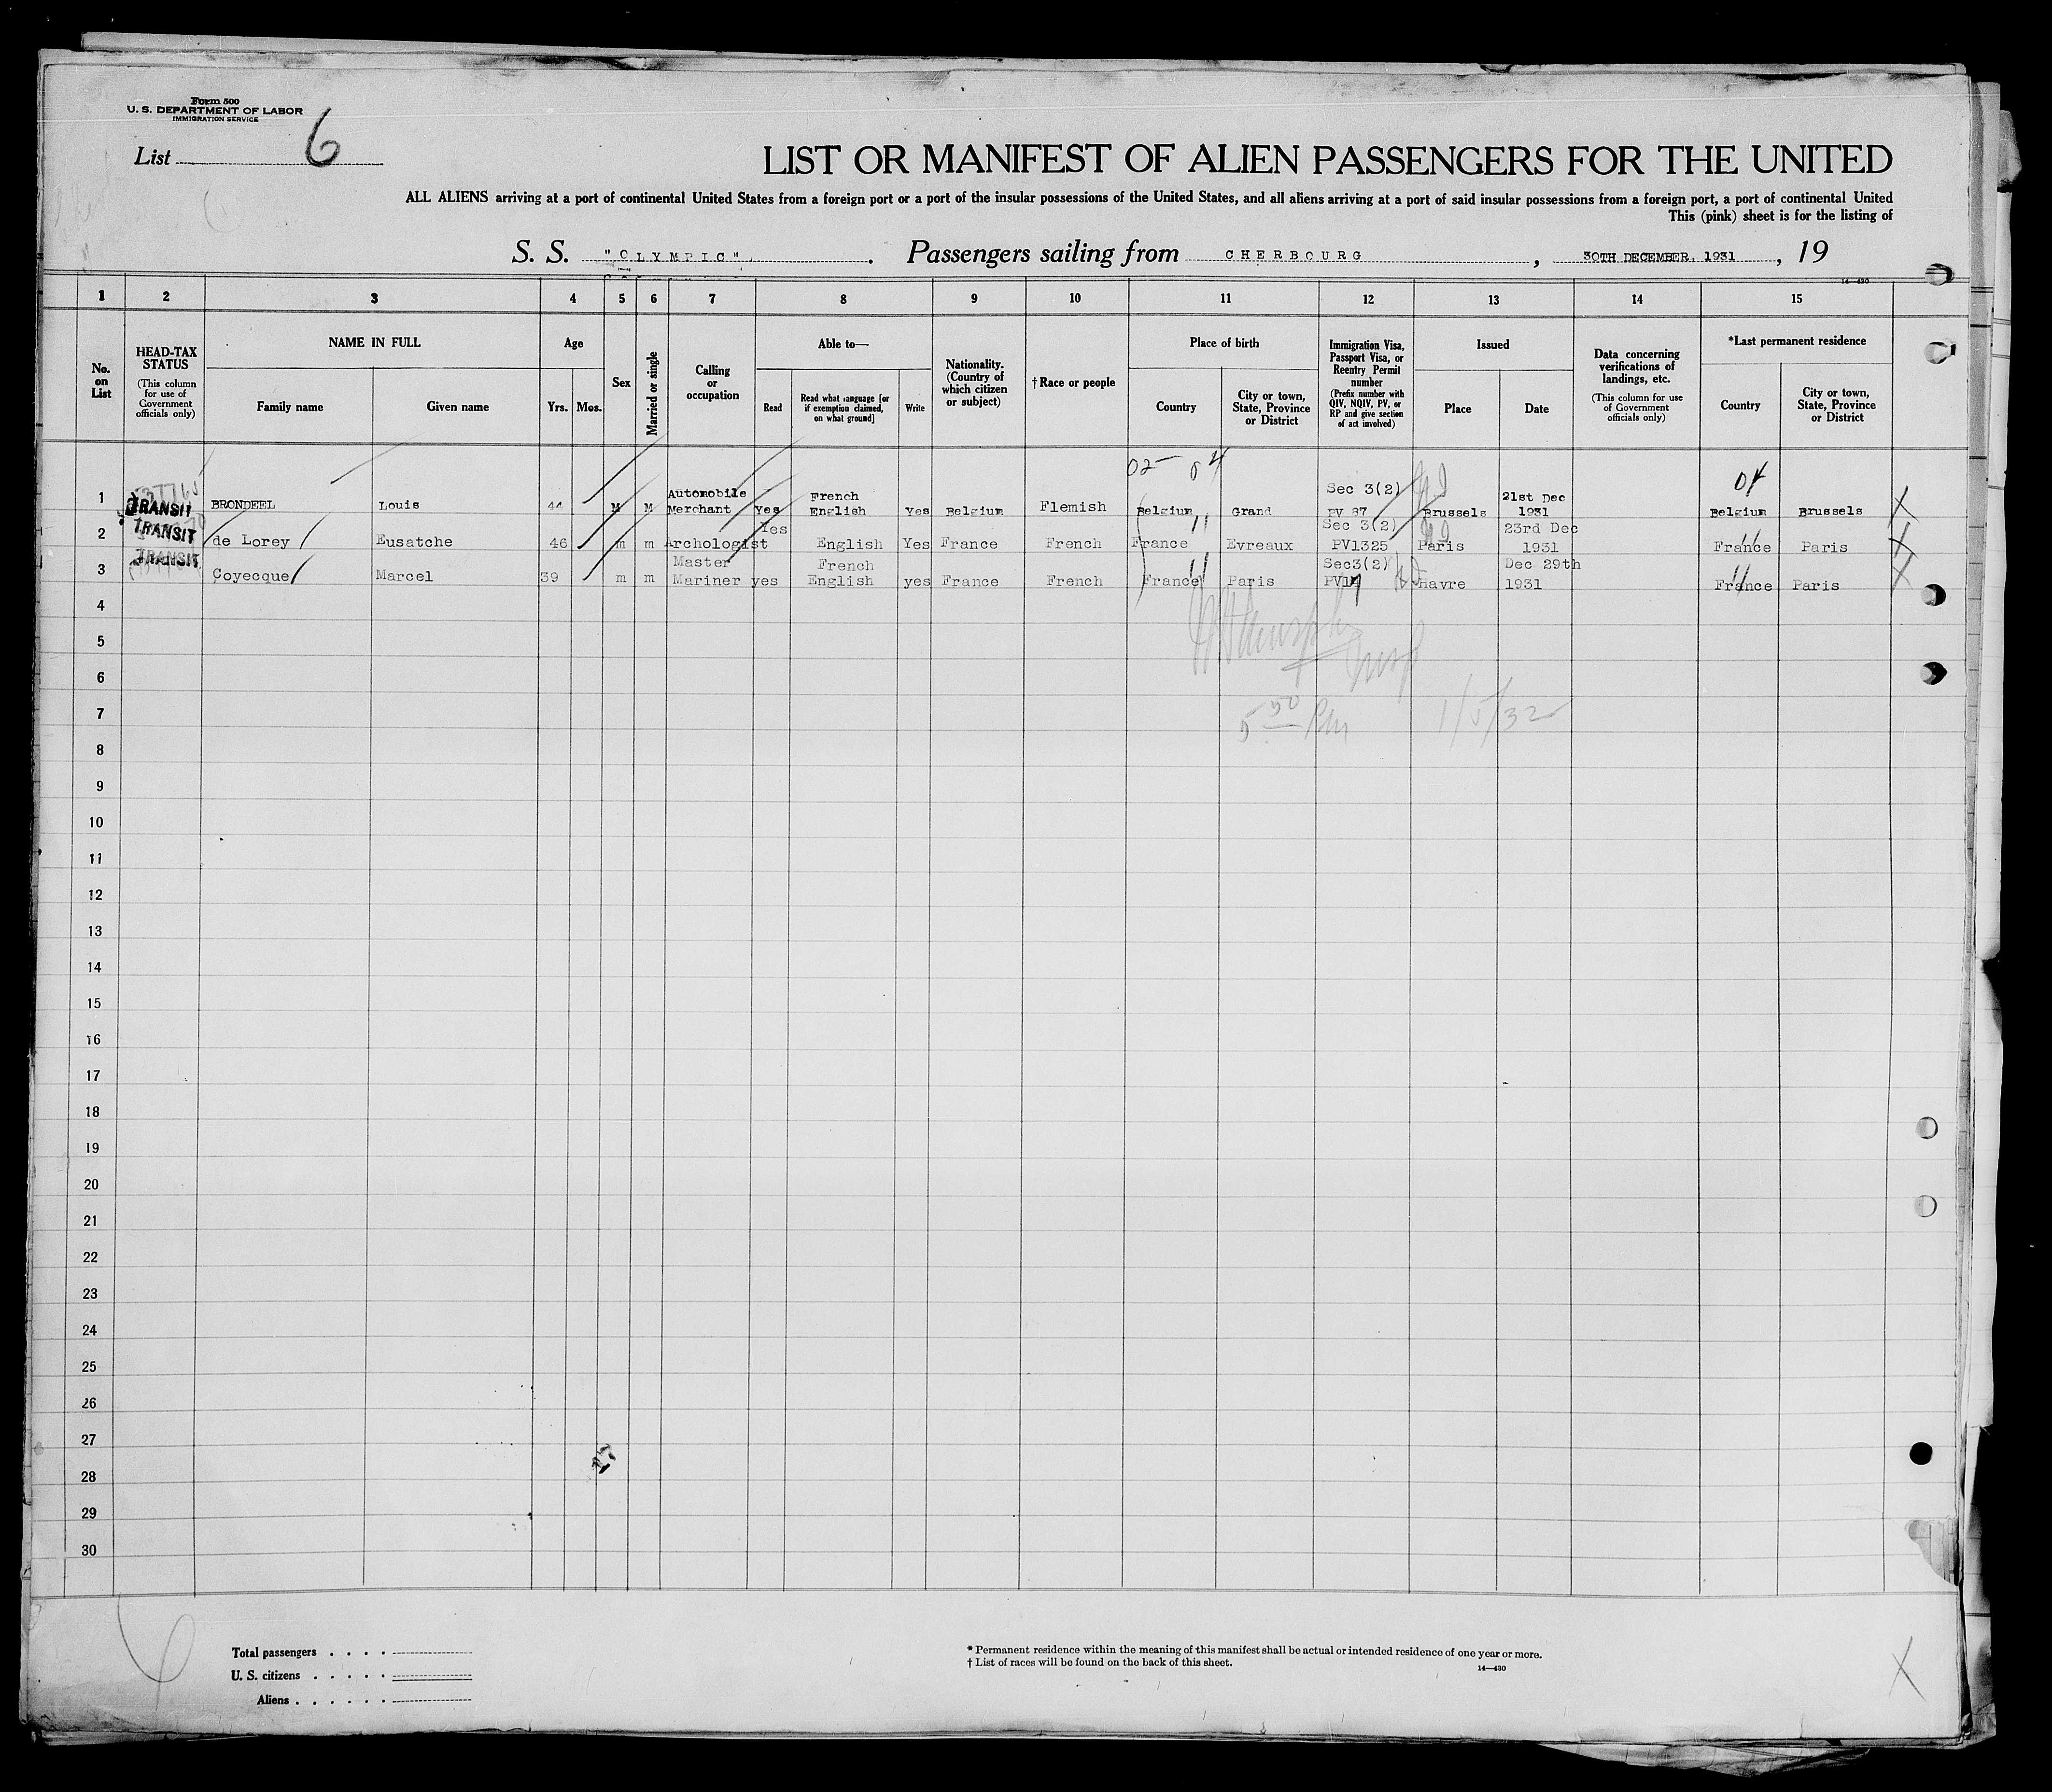 Form 500
U. S. DEPARTMENT OF LABOR
IMMIGRATION SERVICE
List 6
LIST OR MANIFEST OF ALIEN PASSENGERS FOR THE UNITED
ALL ALIENS arriving at a port of continental United States from a foreign port or a port of the insular possessions of the United States, and all aliens arriving at a port of said insular possessions from a foreign port, a port of continental United
This (pink) sheet is for the listing of
S. S. "OLYMPIC". Passengers sailing from CHERBOURG, 30TH DECEMBER, 1931, 19
14—430
1 2 3 4 5 6 7 8 9 10 11 12 13 14 15
No. on List
HEAD-TAX STATUS
(This column for use of Government officials only)
NAME IN FULL
Family name Given name
Age
Yrs. Mos.
Sex
Married or single
Calling or occupation
Able to—
Read
Read what language [or if exemption claimed, on what ground]
Write
Nationality. (Country of which citizen or subject)
† Race or people
Place of birth
Country
City or town, State, Province or District
Immigration Visa, Passport Visa, or Reentry Permit number
(Prefix number with QIV, NQIV, PV, or RP and give section of act involved)
Issued
Place Date
Data concerning verifications of landings, etc.
(This column for use of Government officials only)
*Last permanent residence
Country
City or town, State, Province or District
02- 04 04
1 TRANSIT BRONDEEL Louis 44 M M Automobile Merchant Yes French English Yes Belgium Flemish Belgium Grand Sec 3(2) PV 87 Brussels 21st Dec 1931 Belgium Brussels X
2 TRANSIT de Lorey Eusatche 46 m m Archologist Yes English Yes France French France 11 Evreaux Sec 3(2) PV1325 Paris 23rd Dec 1931 France 11 Paris X
3 TRANSIT Coyecque Marcel 39 m m Master Mariner yes French English yes France French France 11 Paris Sec3(2) PV17 Havre Dec 29th 1931 France 11 Paris X
4
5
6
7 5 50 Pm 1/5/32
8
9
10
11
12
13
14
15
16
17
18
19
20
21
22
23
24
25
26
27
28
29
30
Total passengers . . . .
U. S. citizens . . . . .
Aliens . . . . . .
* Permanent residence within the meaning of this manifest shall be actual or intended residence of one year or more.
† List of races will be found on the back of this sheet.
14—430
X